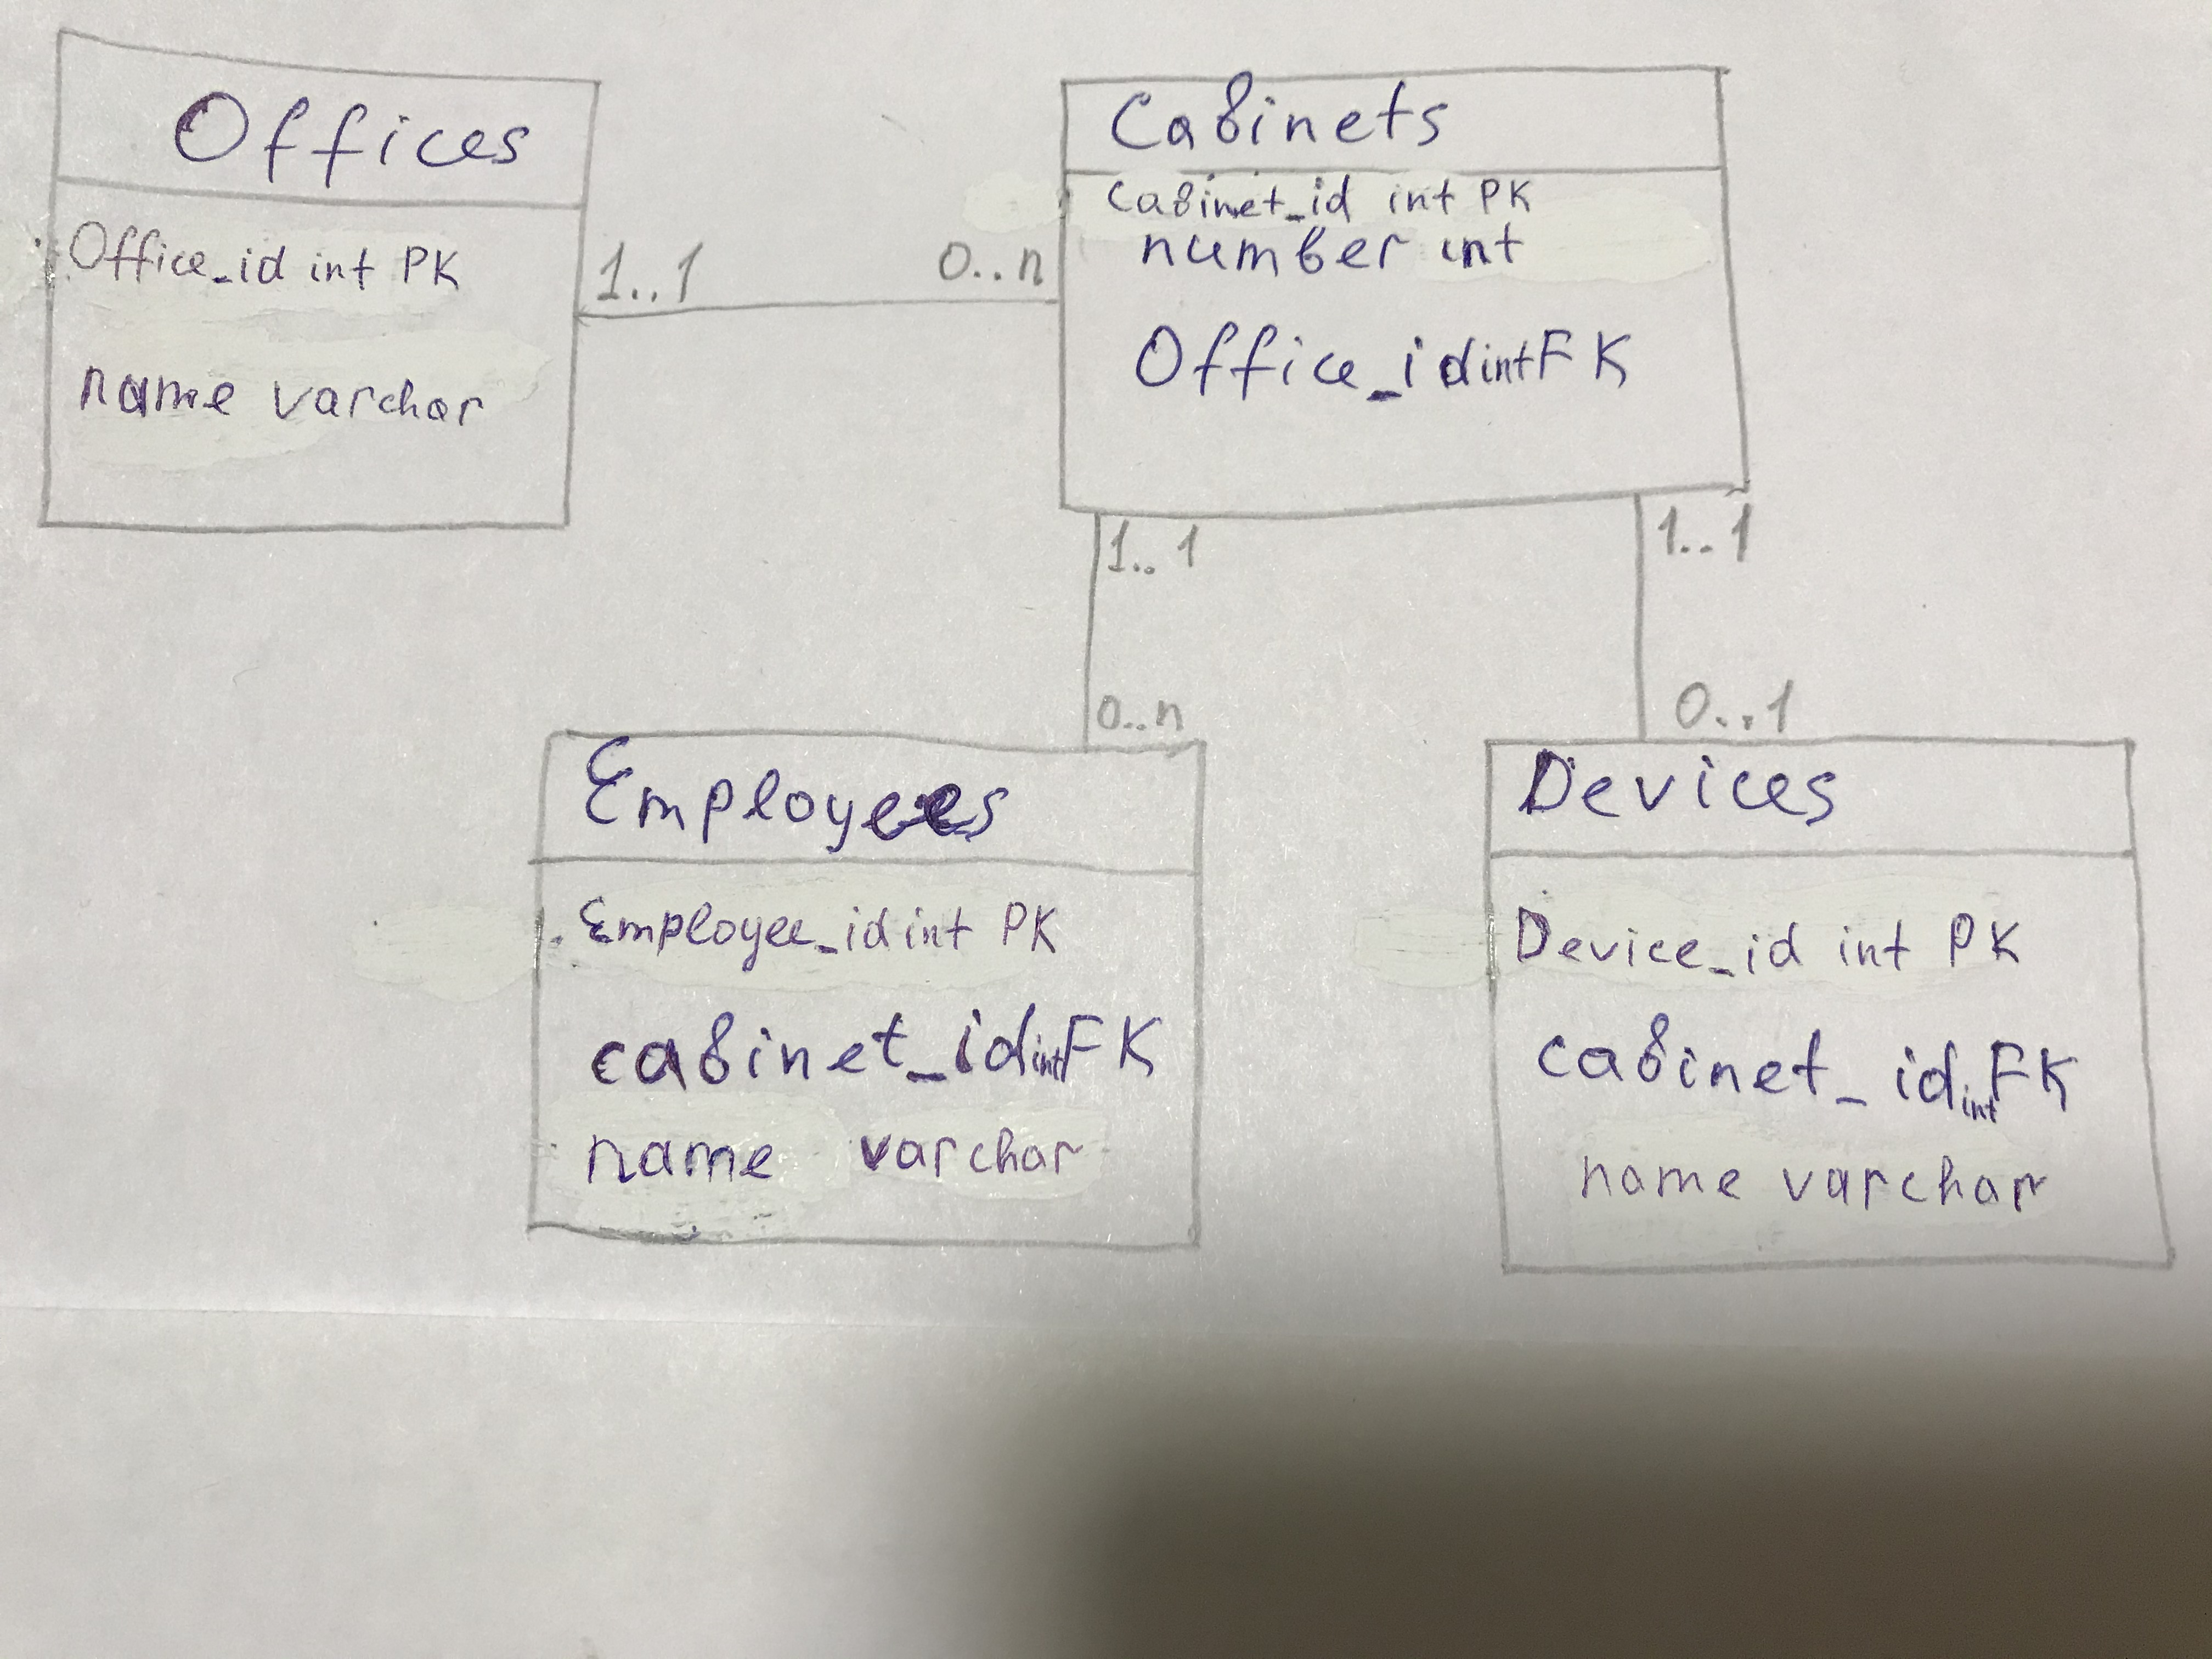 Offices
Office_id int PK
name varchar
1..1
0..n
Cabinets
Cabinet_id int PK
number int
Office_id int FK
1..1
0..n
1..1
0..1
Employees
Employee_id int PK
cabinet_id int FK
name varchar
Devices
Device_id int PK
cabinet_id int FK
name varchar